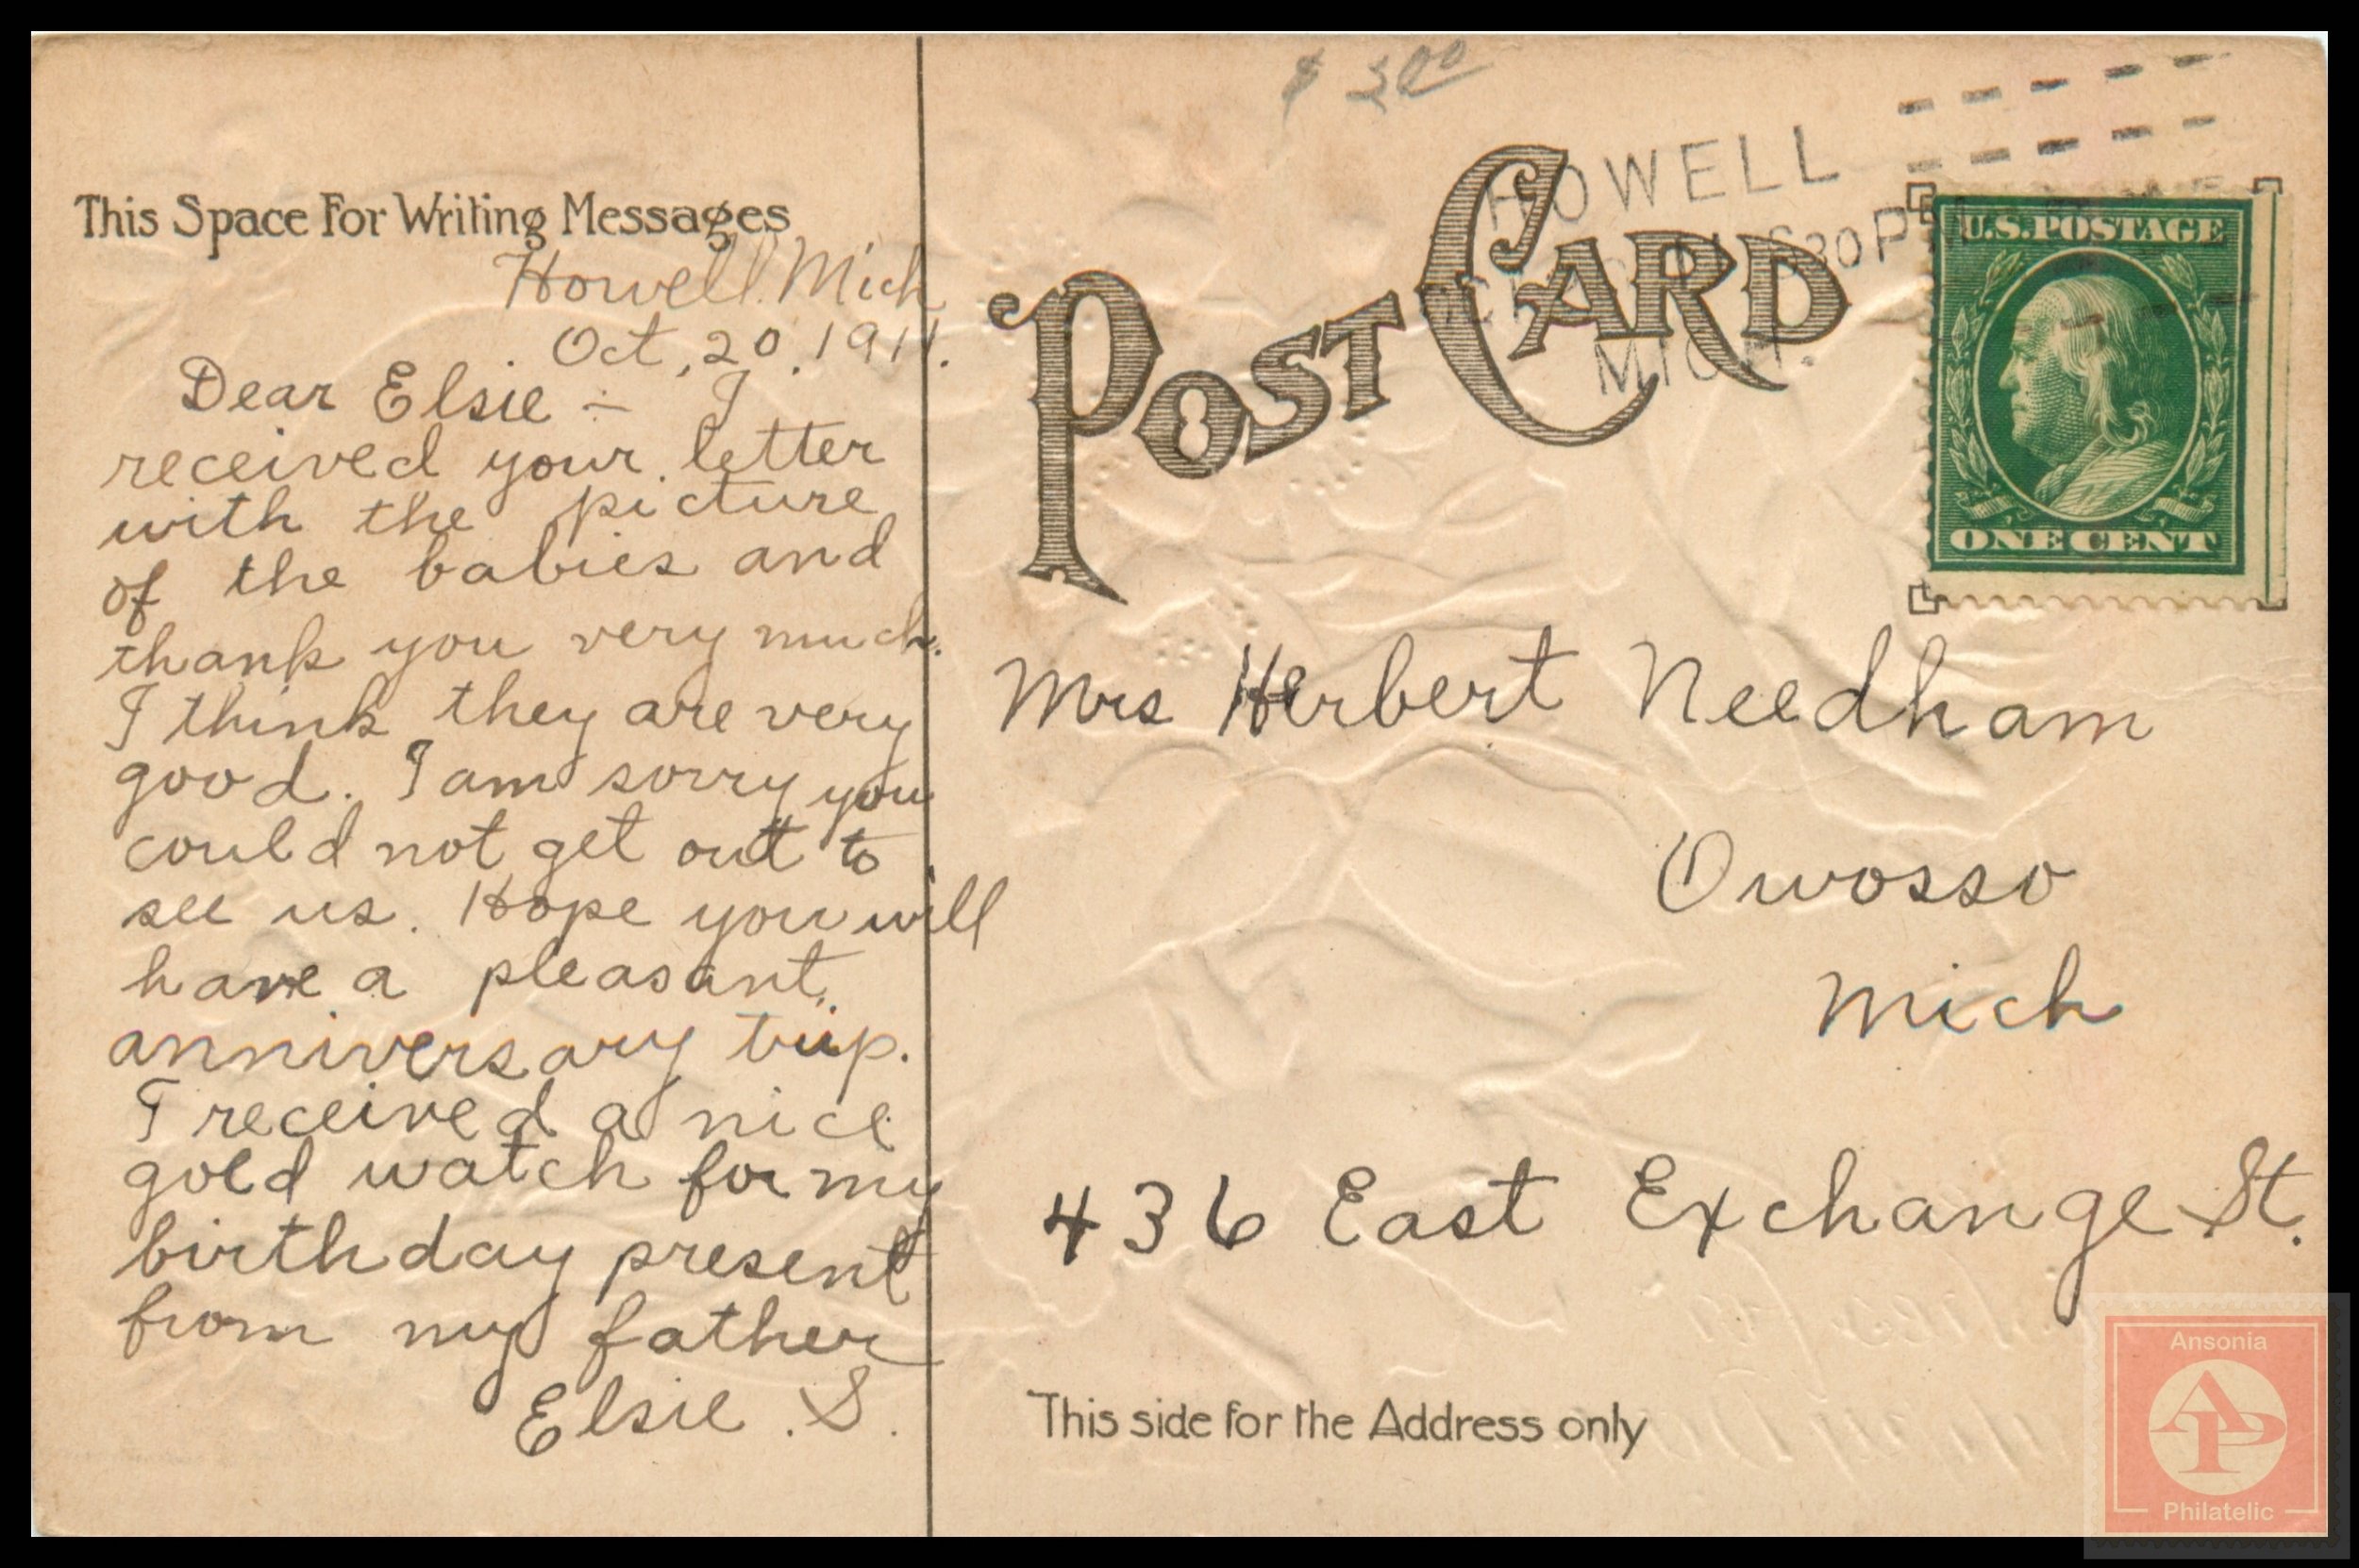 This Space For Writing Messages
Howell. Mich
Oct, 20, 1911.
Dear Elsie – I
received your letter
with the picture
of the babies and
thank you very much.
I think they are very
good. I am sorry you
could not get out to
see us. Hope you will
have a pleasant
anniversary trip.
I received a nice
gold watch for my
birthday present
from my father
Elsie. S.
$ 3.00
POST CARD
HOWELL
630 PM
MICH.
U.S. POSTAGE
ONE CENT
Mrs Herbert Needham
Owosso
Mich
436 East Exchange St.
This side for the Address only
Ansonia
AP
Philatelic